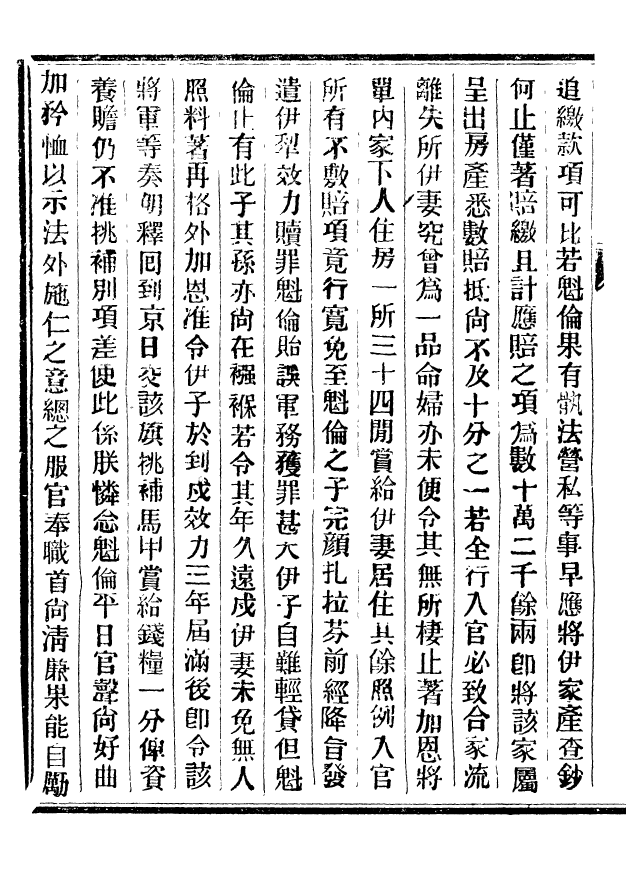 追繳款項可比若魁倫果有執法營私等事早應將伊家產查鈔
何止僅著賠繳且計應賠之項爲數十萬二千餘兩卽將該家屬
呈出房產悉數賠抵尙不及十分之一若全行入官必致合家流
離失所伊妻究曾爲一品命婦亦未便令其無所棲止著加恩將
單內家下人住房一所三十四閒賞給伊妻居住其餘照例入官
所有不敷賠項竟行寬免至魁倫之子完顏扎拉芬前經降旨發
遣伊犁效力贖罪魁倫貽誤軍務獲罪甚大伊子自難輕貸但魁
倫止有此子其孫亦尙在襁褓若令其年久遠戍伊妻未免無人
照料著再格外加恩准令伊子於到戍效力三年屆滿後卽令該
將軍等奏明釋回到京日交該旗挑補馬甲賞給錢糧一分俾資
養贍仍不准挑補別項差使此係朕憐念魁倫平日官聲尙好曲
加矜恤以示法外施仁之意總之服官奉職首尙淸廉果能自勵